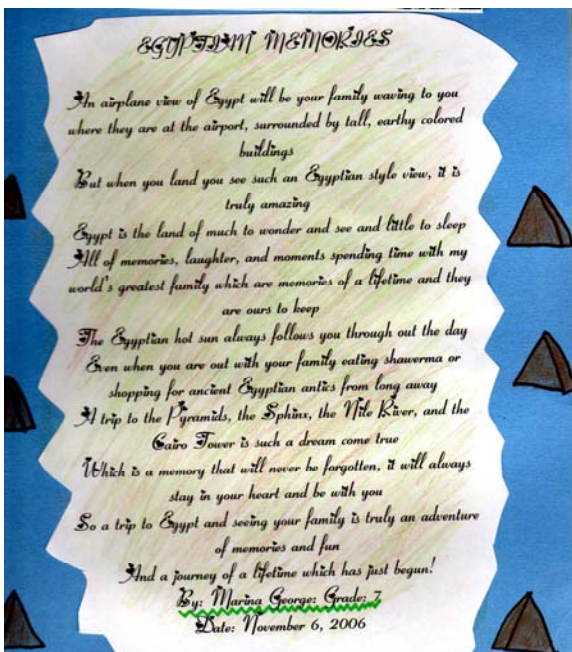 EGYPTIAN MEMORIES
An airplane view of Egypt will be your family waving to you
where they are at the airport, surrounded by tall, earthy colored
buildings
But when you land you see such an Egyptian style view, it is
truly amazing
Egypt is the land of much to wonder and see and little to sleep
All of memories, laughter, and moments spending time with my
world's greatest family which are memories of a lifetime and they
are ours to keep
The Egyptian hot sun always follows you through out the day
Even when you are out with your family eating shawerma or
shopping for ancient Egyptian antics from long away
A trip to the Pyramids, the Sphinx, the Nile River, and the
Cairo Tower is such a dream come true
Which is a memory that will never be forgotten, it will always
stay in your heart and be with you
So a trip to Egypt and seeing your family is truly an adventure
of memories and fun
And a journey of a lifetime which has just begun!
By: Marina George: Grade: 7
Date: November 6, 2006